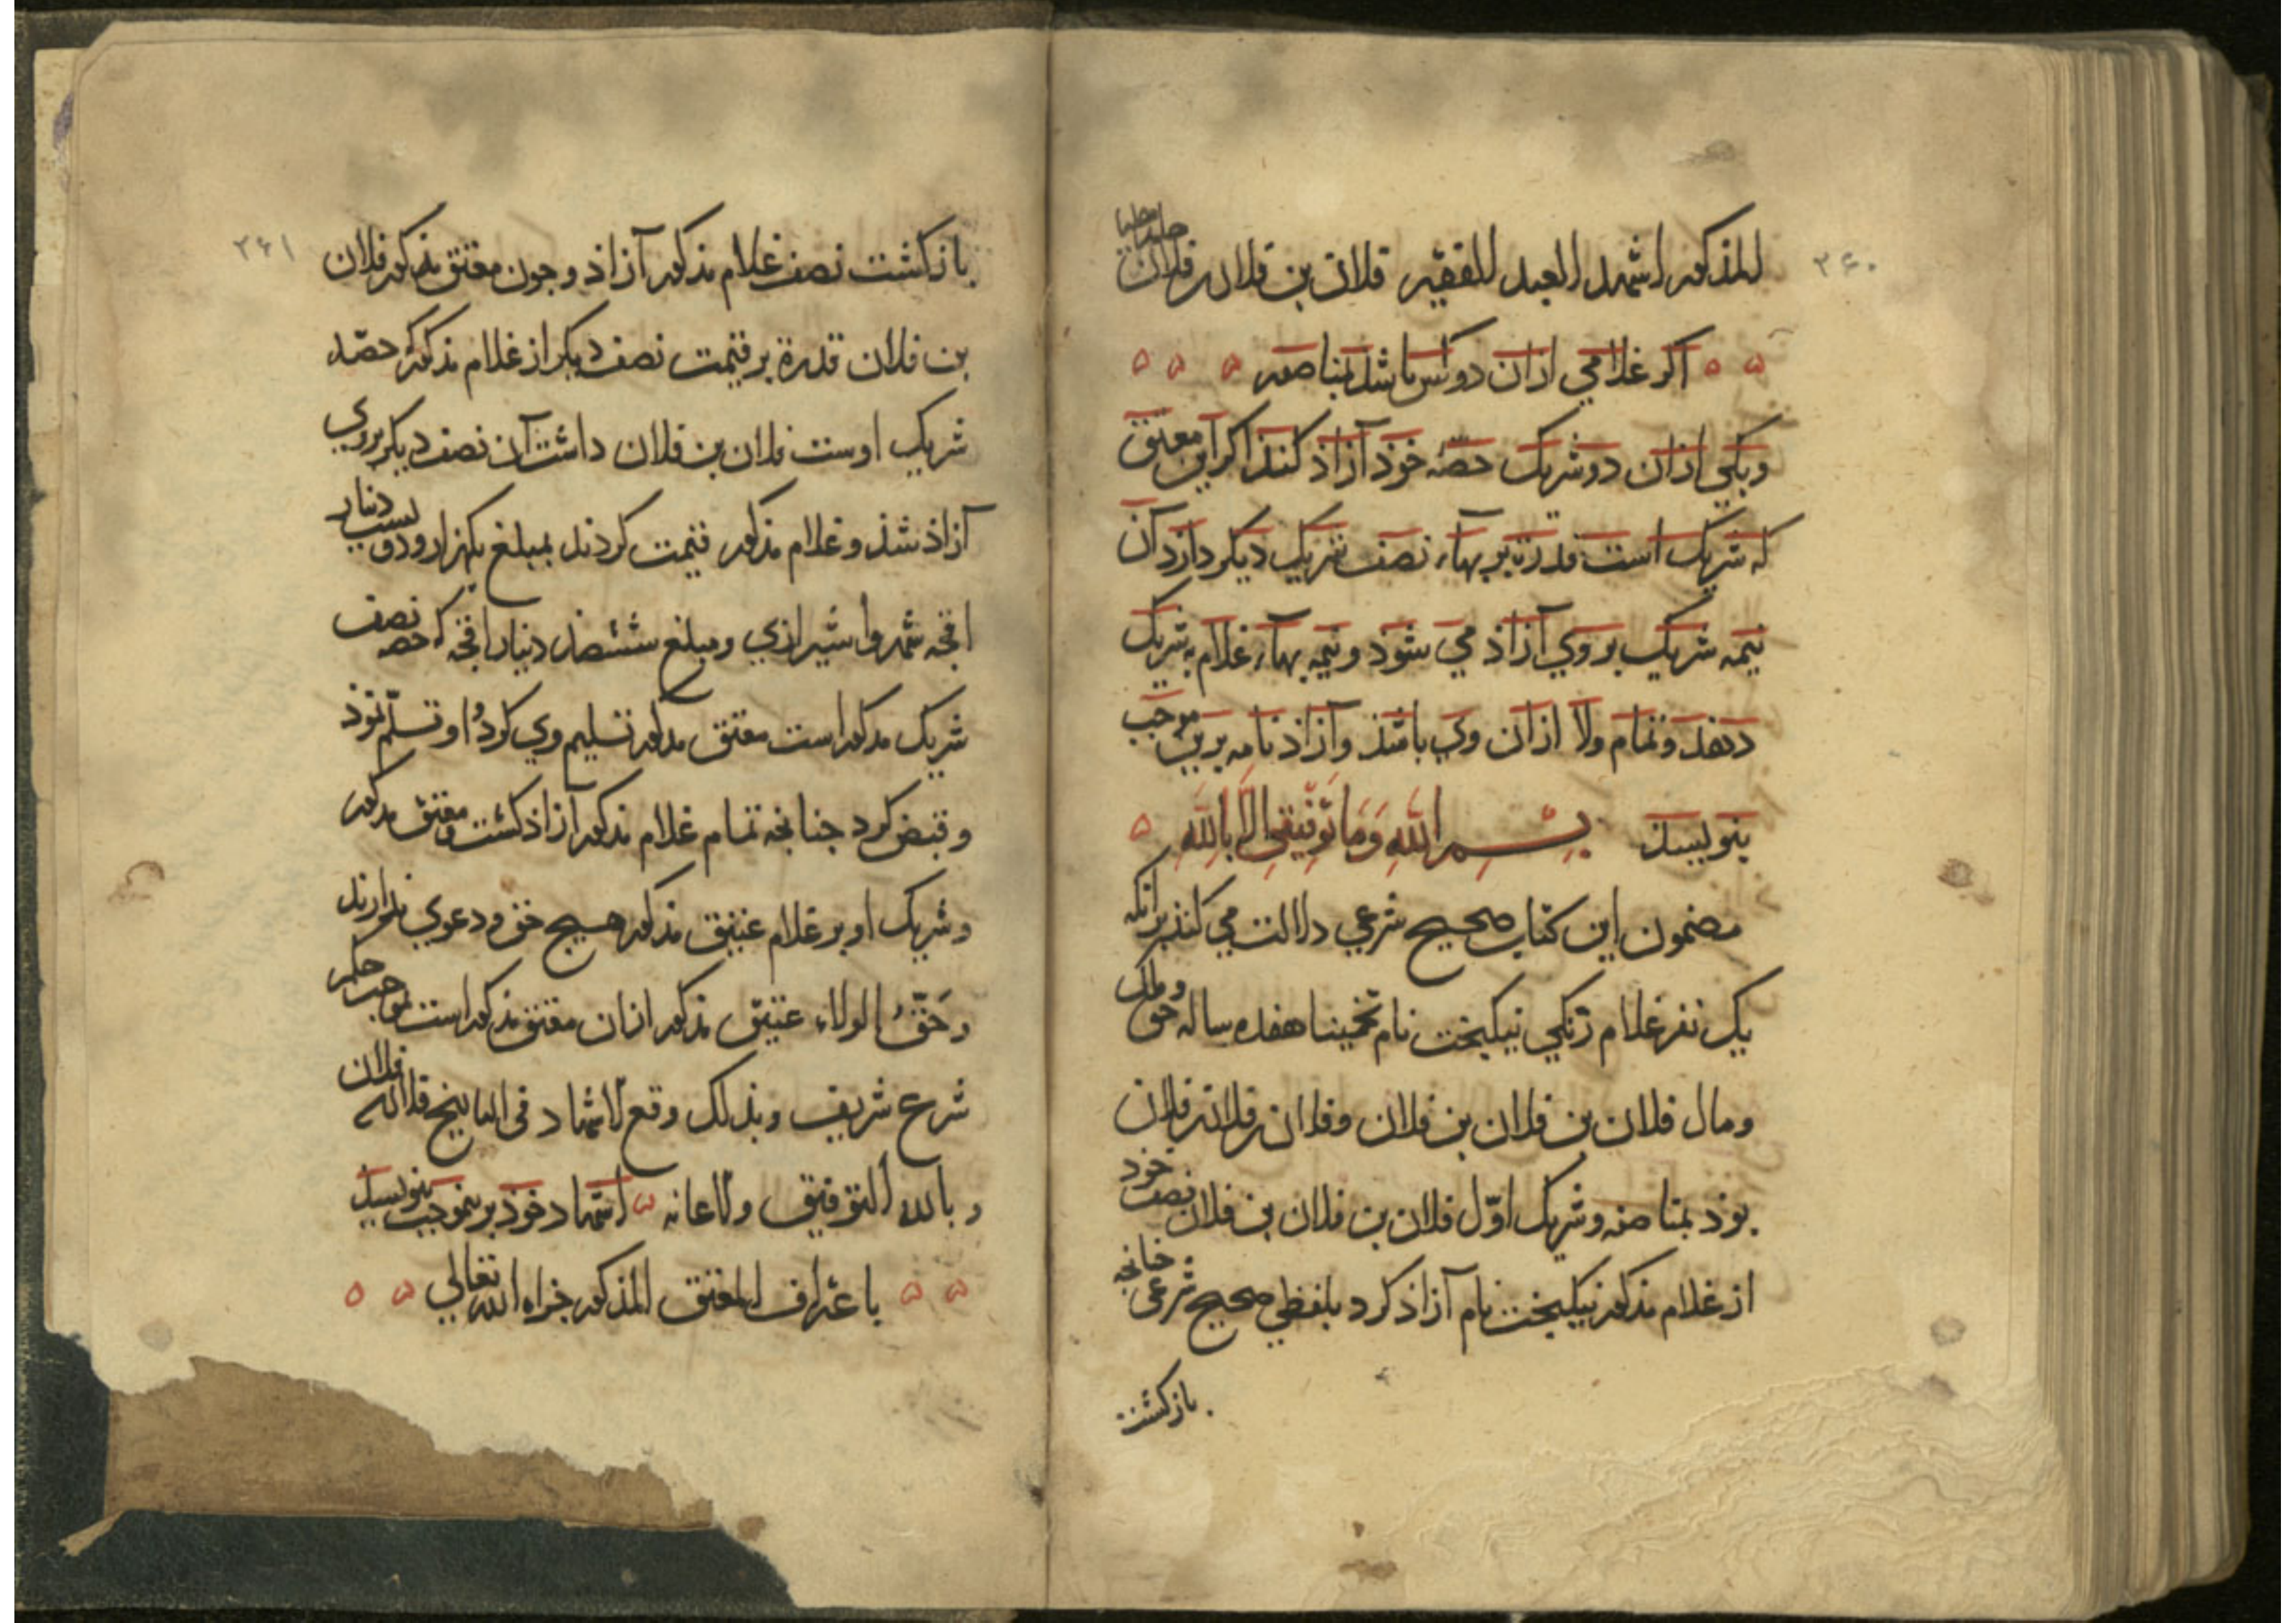 ۲۶۰
المذکور اشهد العبد الفقیر فلان بن فلان بن فلان حامدا مصلیا
اکر غلامی ازان دو کس باشد بمناصفه
و یکی ازان دو شریک حصّه خوذ آزاذ کنذ اکر این معتق
که شریک است قدرة بر بهاء نصف شریک دیکر دارد آن
نیمه شریک بر وی آزاذ می شوذ و نیمه بهاء غلام به شریک
دهذ و تمام ولا ازان وی باشذ و آزاذ نامه برین موجب
بنویسند بِسْمِ اللهِ وَمَا تَوْفِيقِي إِلَّا بِاللهِ
مضمون این کتاب صحیح شرعی دلالت می کنذ برانکه
یک نفر غلام زنکی نیکبخت نام تخمینا هفده ساله حق و ملک
و مال فلان بن فلان بن فلان و فلان بن فلان بن فلان
بوذ بمناصفه و شریک اوّل فلان بن فلان بن فلان نصف خوذ
از غلام مذکور نیکبخت نام آزاذ کرد بلفظی صحیح شرعی جنانجه
بازکشت
۲۶۱
بازکشت نصف غلام مذکور آزاذ و جون معتق مذکور فلان
بن فلان قدرة بر قیمت نصف دیکر از غلام مذکور که حصّه
شریک اوست فلان بن فلان داشت آن نصف دیکر بروی
آزاذ شذ و غلام مذکور قیمت کردند بمبلغ یکهزار و دویست دینار
اقجه شمروا شیرازی و مبلغ ششصد دینار اقجه که حصه نصف
شریک مذکور است معتق مذکور تسلیم وی کرد و او تسلّم نموذ
و قبض کرد جنانجه تمام غلام مذکور آزاذ کشت و معتق مذکور
و شریک او بر غلام عتیق مذکور هیچ حق و دعوی ندارند
و حقّ الولاء عتیق مذکور ازان معتق مذکور است بموجب حکم
شرع شریف و بذلک وقع الاشهاد فی التاریخ فلان
و بالله التوفیق والاعانه اشهاد خوذ برینموجب بنویسد
باعتراف المعتق المذکور جزاه الله تعالی